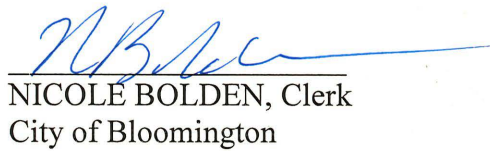 N Bolden
NICOLE BOLDEN, Clerk
City of Bloomington